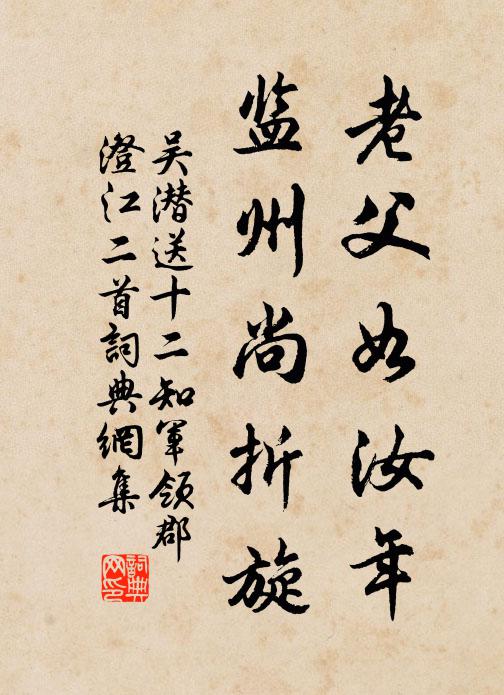 老父如汝年
监州尚折旋
吴潜送十二知军领郡
澄江二首詞典網集
詞典
网印